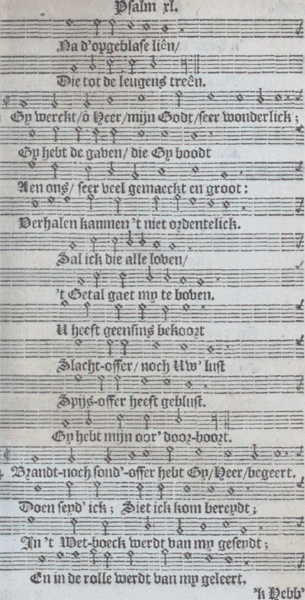 Psalm xl.
Na d'opgeblase liên/
Die tot de leugens treên.
Gy werckt/ô Heer/mijn Godt/seer wonderlick;
Gy hebt de gaven/ die Gy boodt
Aen ons/ seer veel gemaeckt en groot:
Verhalen kanmen 't niet ordentelick.
Sal ick die alle loven/
't Getal gaet my te boven.
U heeft geensins bekoort
Slacht-offer/ noch Uw' lust
Spijs-offer heeft geblust.
Gy hebt mijn oor' door-boort.
Brandt-noch sond'-offer hebt Gy/Heer/begeert.
Doen seyd' ick; Siet ick kom bereydt;
In 't Wet-boeck werdt van my geseydt;
En in de rolle werdt van my geleert.
'k Hebb'